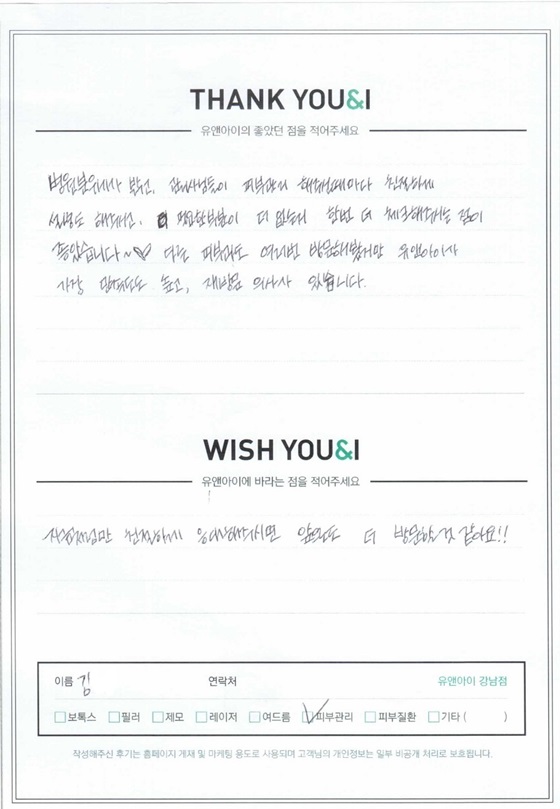 THANK YOU&I
유앤아이의 좋았던 점을 적어주세요
병원분위기가 밝고, 관리사님들이 피부관리 해주실때마다 친절하게
설명도 해주시고, 불편한부분이 더 없는지 한번 더 체크해주시는 점이
좋았습니다~♡ 다른 피부과도 여러번 방문해봤지만 유앤아이가
가장 만족도도 높고, 재방문 의사가 있습니다.
WISH YOU&I
유앤아이에 바라는 점을 적어주세요
지금처럼만 친절하게 응대해주시면 앞으로도 더 방문할 것 같아요!!
이름 김 연락처 유앤아이 강남점
보톡스 필러 제모 레이저 여드름 피부관리 피부질환 기타 ( )
작성해주신 후기는 홈페이지 게재 및 마케팅 용도로 사용되며 고객님의 개인정보는 일부 비공개 처리로 보호됩니다.